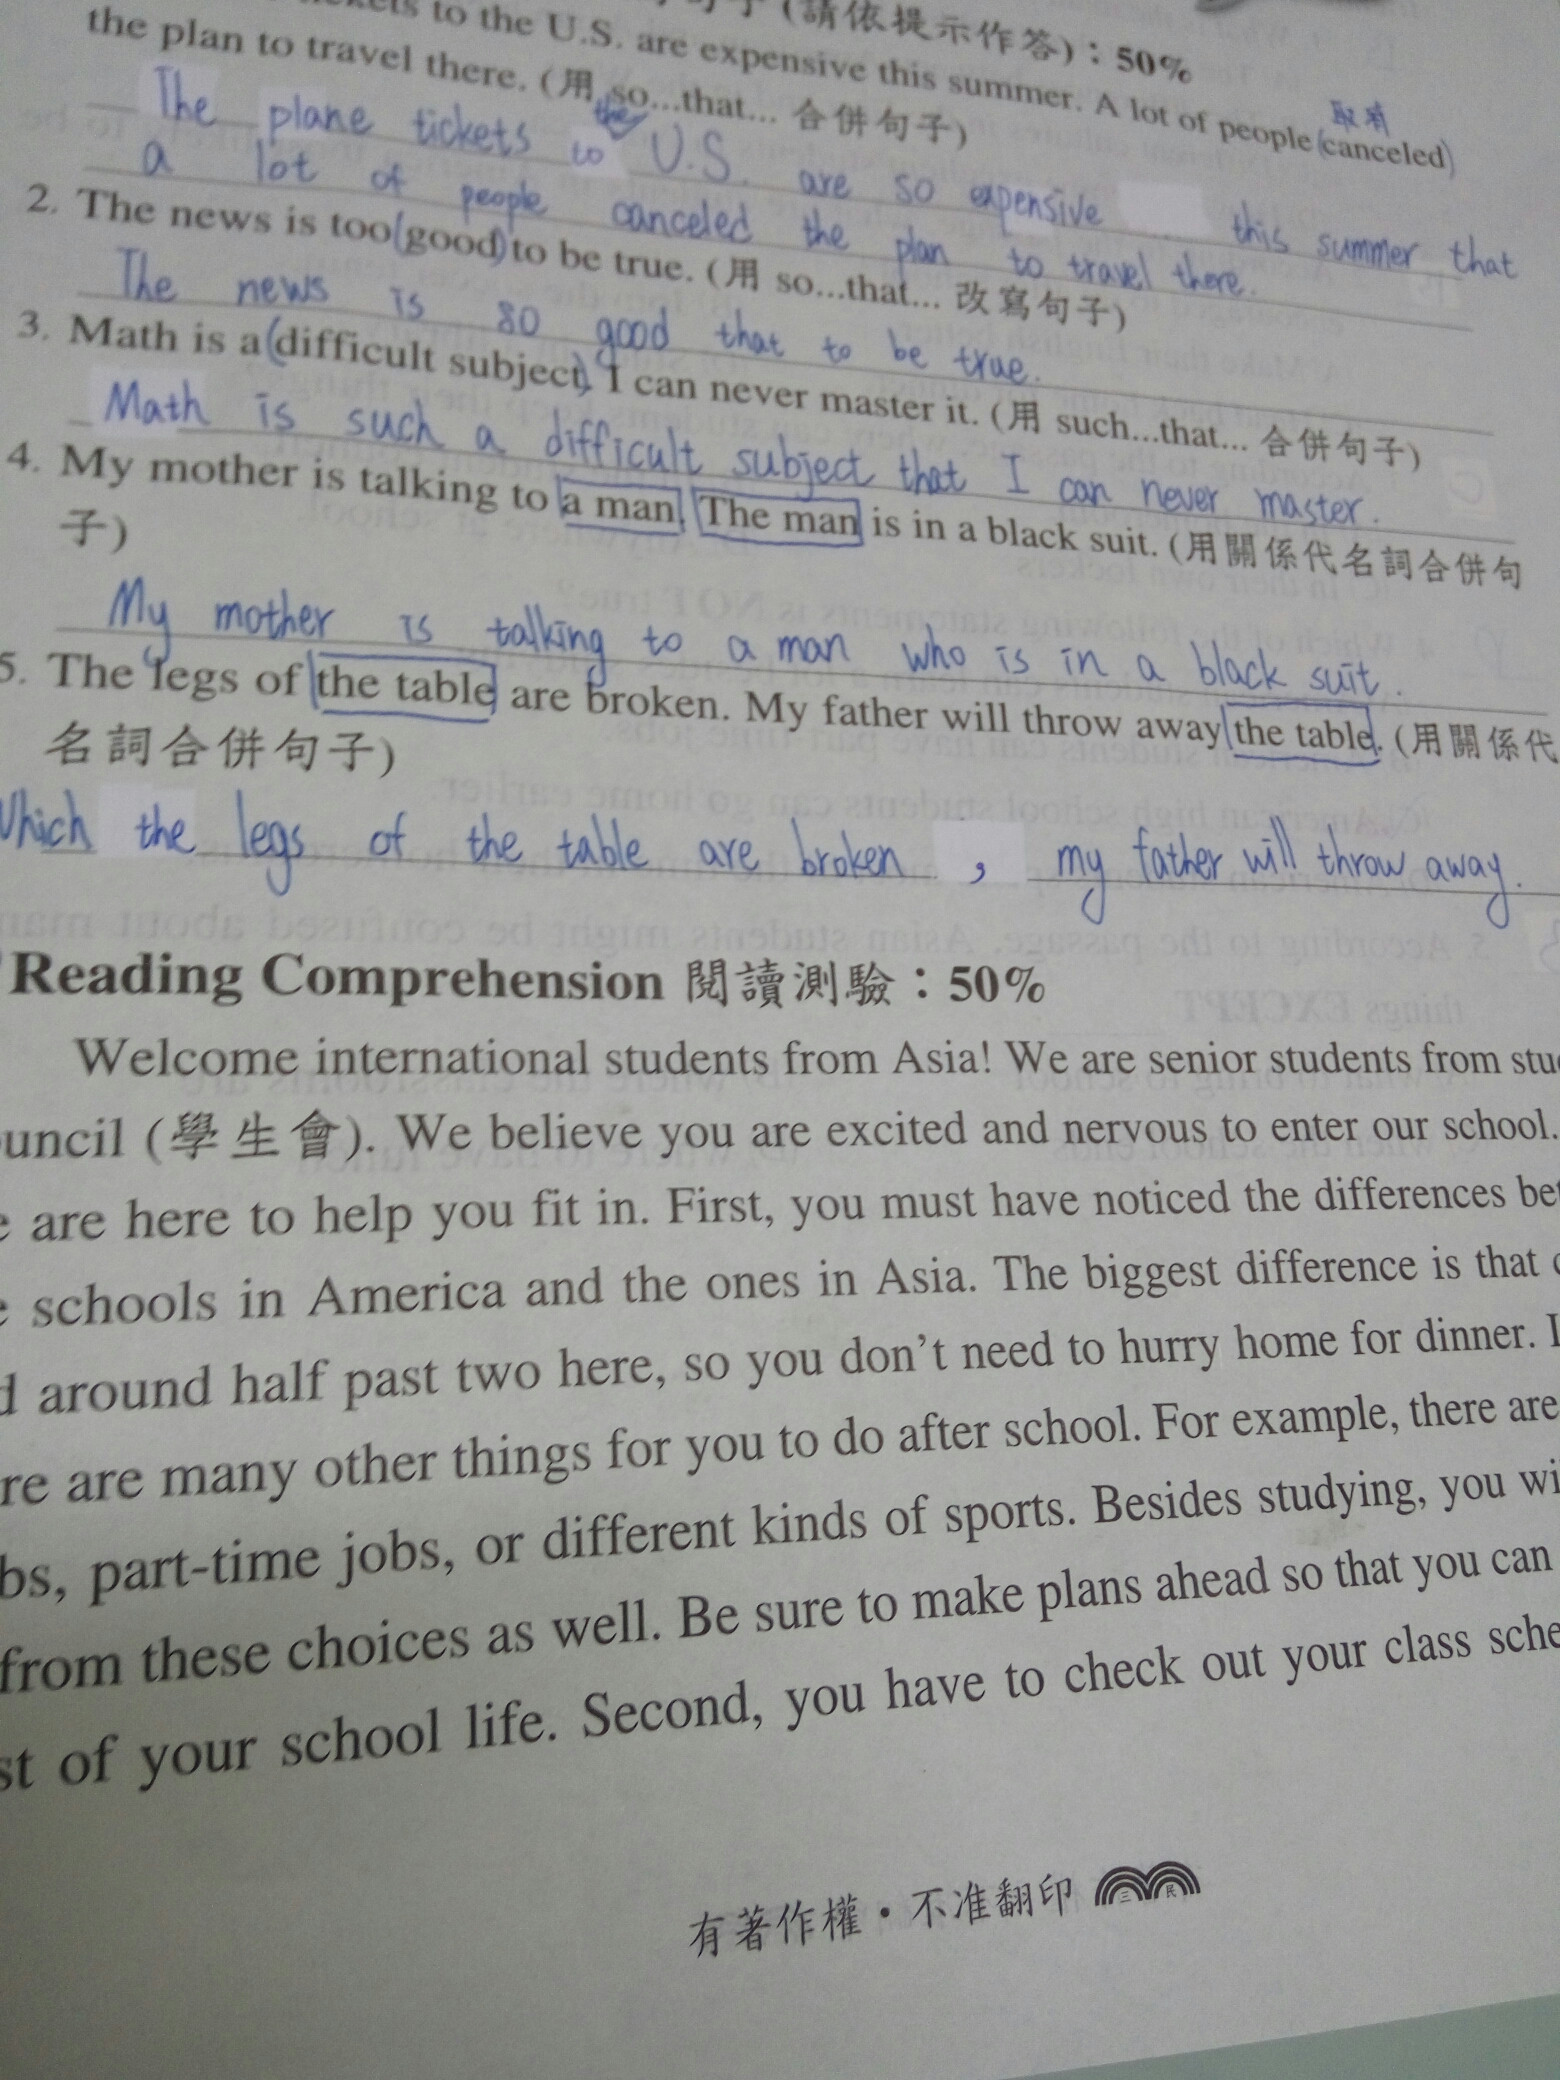 句子 (請依提示作答)：50%
to the U.S. are expensive this summer. A lot of people (canceled)
取消
the plan to travel there. (用 so...that... 合併句子)
the
The plane tickets to U.S. are so expensive this summer that
a lot of people canceled the plan to travel there.
2. The news is too (good) to be true. (用 so...that... 改寫句子)
The news is so good that to be true.
3. Math is a (difficult subject). I can never master it. (用 such...that... 合併句子)
Math is such a difficult subject that I can never master.
4. My mother is talking to a man. The man is in a black suit. (用關係代名詞合併句
子)
My mother is talking to a man who is in a black suit.
5. The legs of the table are broken. My father will throw away the table. (用關係代
名詞合併句子)
Which the legs of the table are broken , my father will throw away.
Reading Comprehension 閱讀測驗：50%
Welcome international students from Asia! We are senior students from
(學生會). We believe you are excited and nervous to enter our school.
are here to help you fit in. First, you must have noticed the differences
schools in America and the ones in Asia. The biggest difference is that
around half past two here, so you don't need to hurry home for dinner.
are many other things for you to do after school. For example, there are
part-time jobs, or different kinds of sports. Besides studying, you
from these choices as well. Be sure to make plans ahead so that you can
of your school life. Second, you have to check out your class
有著作權・不准翻印 三民